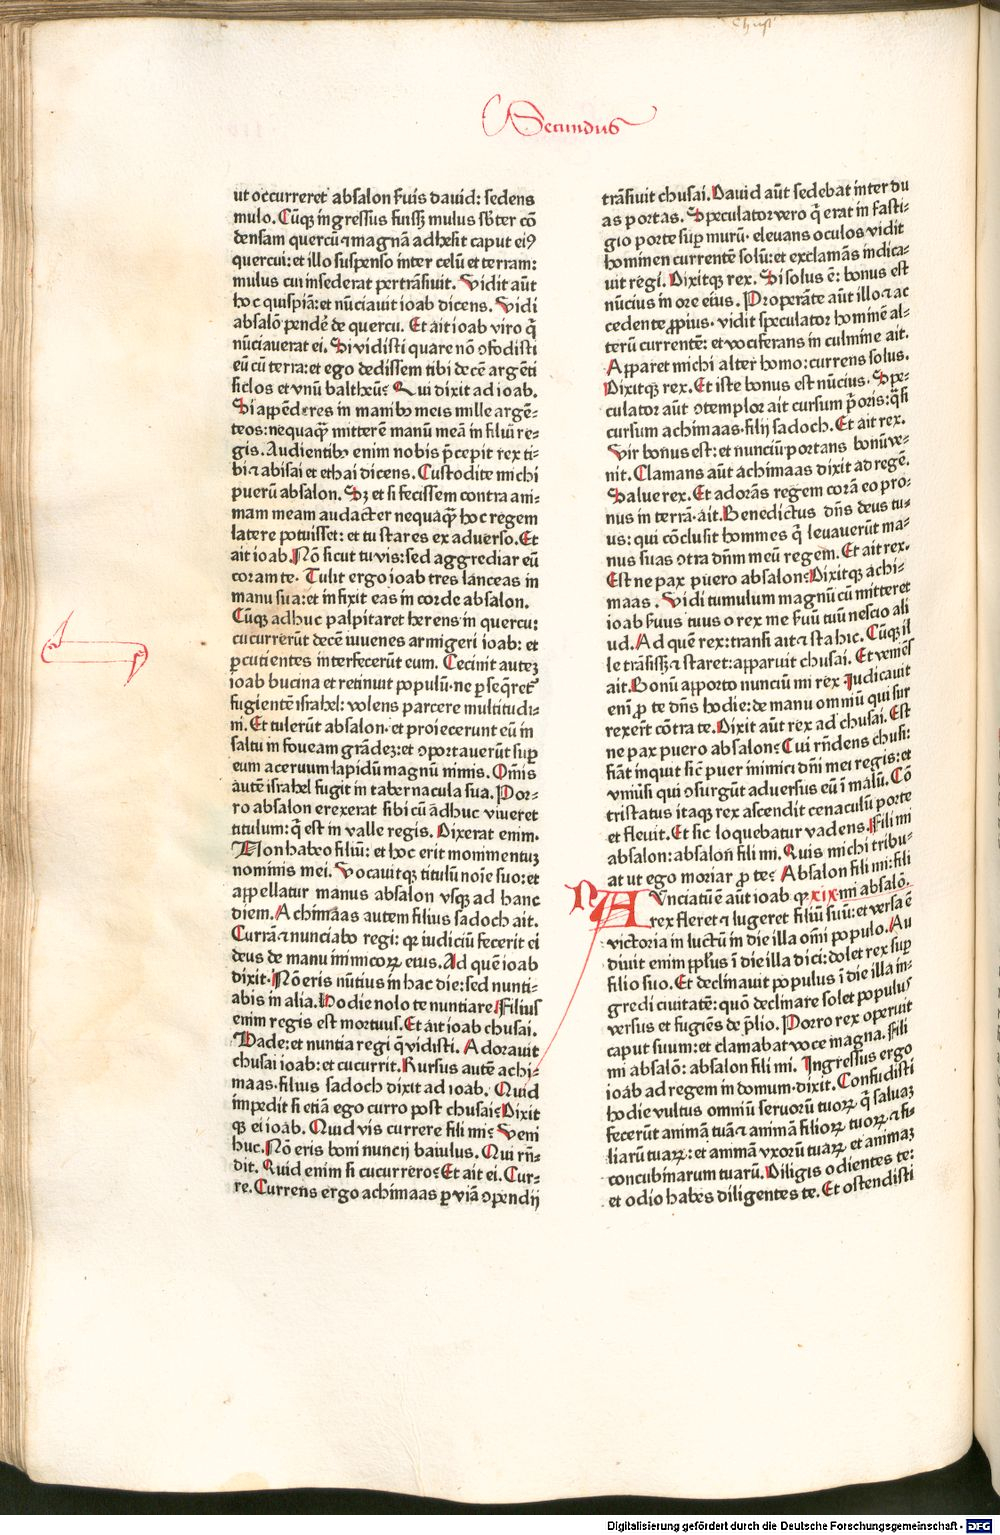 Secundus
ut occurreret absalon ẜuis dauid: sedens
mulo. Cūqꝫ ingressus fuissꝫ mulus sb̄ter cō
densam quercū ⁊ magnā adhesit caput eiꝰ
quercui: et illo suspenso inter celū et terram:
mulus cui insederat pertrāsiuit. Vidit aūt
hoc quispiā: et nūciauit ioab dicens. Vidi
absalō pendē de quercu. Et ait ioab viro q̄
nūciauerat ei. Si vidisti quare nō ꝯfodisti
eū cū terra: et ego dedissem tibi decē argēti
siclos et vnū baltheū? Qui dixit ad ioab.
Si appēderes in manibꝰ meis mille argē-
teos: nequaq̄ mitterē manū meā in filiū re-
gis. Audientibꝰ enim nobis p̄cepit rex ti-
bi ⁊ abisai et ethai dicens. Custodite michi
puerū absalon. Sꝫ et si fecissem contra ani-
mam meam audacter nequaq̄ hoc regem
latere potuisset: et tu stares ex aduerso. Et
ait ioab. Nō sicut tu vis: sed aggrediar eū
coram te. Tulit ergo ioab tres lanceas in
manu sua: et infixit eas in corde absalon.
Cūqꝫ adhuc palpitaret herens in quercu:
cucurrerūt decē iuuenes armigeri ioab: et
ꝑcutientes interfecerūt eum. Cecinit auteꝫ
ioab bucina et retinuit populū. ne ꝑseq̄ret
fugientē israhel: volens parcere multitudi-
ni. Et tulerūt absalon. et proiecerunt eū in
saltu in foueam grādeꝫ: et ꝯportauerūt suꝑ
eum aceruum lapidū magnū nimis. Omīs
autē israhel fugit in tabernacula sua. Por-
ro absalon erexerat sibi cū adhuc viueret
titulum: q̄ est in valle regis. Dixerat enim.
Non habeo filiū: et hoc erit monimentuꝫ
nominis mei. Vocauitqꝫ titulū noīe suo: et
appellatur manus absalon vsqꝫ ad hanc
diem. Achimaas autem filius sadoch ait.
Currā ⁊ nunciabo regi: qꝛ iudiciū fecerit ei
deus de manu inimicoꝝ eius. Ad quē ioab
dixit. Nō eris nūtius in hac die: sed nunti-
abis in alia. Hodie nolo te nuntiare. Filius
enim regis est mortuus. Et ait ioab chusai.
Vade: et nuntia regi q̄ vidisti. Adorauit
chusai ioab: et cucurrit. Rursus autē achi-
maas. filius sadoch dixit ad ioab. Quid
impedit si etiā ego curro post chusai? Dixit
qꝫ ei ioab. Quid vis currere fili mi? Veni
huc. Nō eris boni nuncij baiulus. Qui rn̄-
dit. Quid enim si cucurrero? Et ait ei. Cur-
re. Currens ergo achimaas ꝑ viā ꝯpendij
trāsiuit chusai. Dauid aūt sedebat inter du
as portas. Speculator vero q̄ erat in fasti-
gio porte suꝑ murū. eleuans oculos vidit
hominen currentē solū: et exclamās indica-
uit regi. Dixitqꝫ rex. Si solus ē: bonus est
nūcius in ore eius. Properāte aūt illo ⁊ ac
cedente ꝓpius. vidit speculator hominē al-
terū currentē: et vociferans in culmine ait.
Apparet michi alter homo: currens solus.
Dixitqꝫ rex. Et iste bonus est nūcius. Spe-
culator aūt ꝯtemplor ait cursum p̄oris: q̄si
cursum achimaas. filij sadoch. Et ait rex.
Vir bonus est: et nunciū portans bonū ve-
nit. Clamans aūt achimaas dixit ad regē.
Salue rex. Et adorās regem corā eo pro-
nus in terrā. ait. Benedictus dn̄s deus tu-
us: qui cōclusit homines q̄ leuauerūt ma-
nus suas ꝯtra dn̄m meū regem. Et ait rex.
Est ne pax puero absalon? Dixitqꝫ achi-
maas. Vidi tumulum magnū cū mitteret
ioab ẜuus tuus o rex me ẜuū tuū nescio ali
ud. Ad quē rex: transi ait ⁊ sta hic. Cūqꝫ il
le trāsissꝫ ⁊ staret: apparuit chusai. Et veniēs
ait. Bonū apporto nunciū mi rex Iudicauit
enī ꝓ te dn̄s hodie: de manu omniū qui sur
rexert̄ cōtra te. Dixit aūt rex ad chusai. Est
ne pax puero absalon? Cui rn̄dens chusi:
fiāt inquit sic̄ puer inimici dn̄i mei regis: et
vniūsi qui ꝯsurgūt aduersus eū ī malū. Cō
tristatus itaqꝫ rex ascendit cenaculū porte
et fleuit. Et sic loquebatur vadens. Fili mi
absalon: absalon fili mi. Quis michi tribu-
at ut ego moriar ꝓ te? Absalon fili mi: fili
Nunciatū ē aūt ioab qꝛ xix. mi absalō.
rex fleret ⁊ lugeret filiū suū: et versa ē
victoria in luctū in die illa om̄i populo. Au
diuit enim pp̄lus ī die illa dici: dolet rex suꝑ
filio suo. Et declinauit populus ī die illa in-
gredi ciuitatē: quō declinare solet populus
versus et fugiēs de p̄lio. Porro rex operuit
caput suum: et clamabat voce magna. Fili
mi absalō: absalon fili mi. Ingressus ergo
ioab ad regem in domum. dixit. Confudisti
hodie vultus omniū seruorū tuoꝝ q̄ saluaꝫ
fecerūt animā tuā ⁊ animā filioꝝ tuoꝝ ⁊ fi-
liarū tuaꝝ: et animā vxorū tuaꝝ et animaꝫ
concubinarum tuarū. Diligis odientes te:
et odio habes diligentes te. Et ostendisti
Digitalisierung gefördert durch die Deutsche Forschungsgemeinschaft - DFG